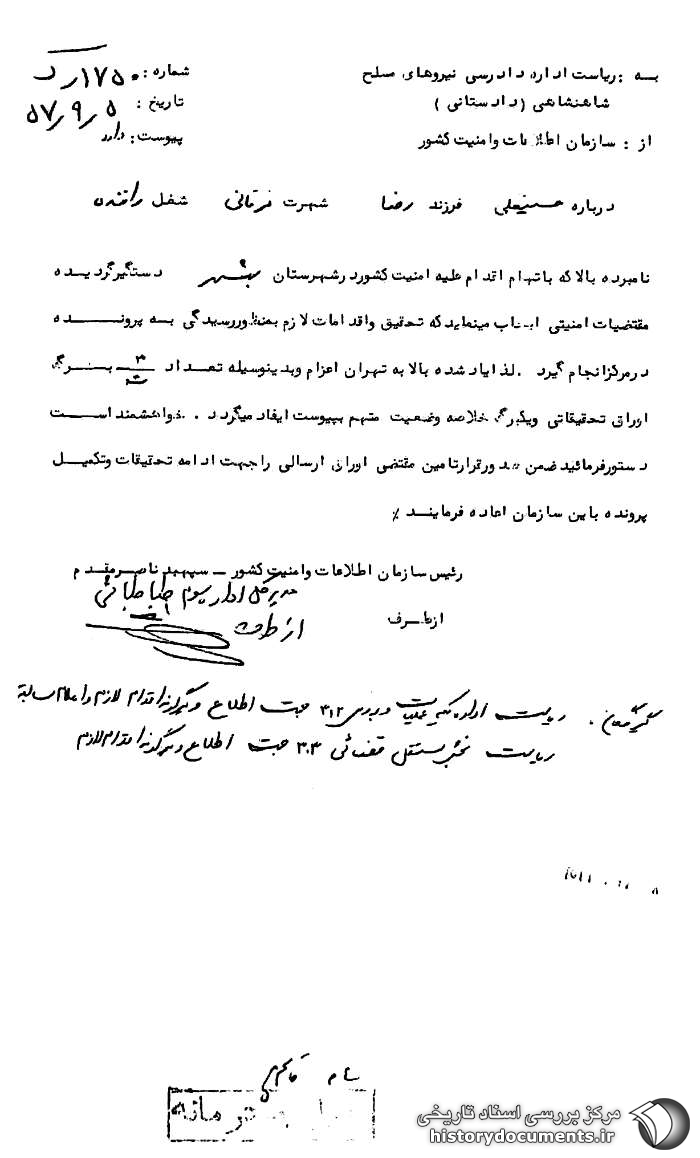 به : ریاست اداره دادرسی نیروهای مسلح
شاهنشاهی (دادستانی)
از : سازمان اطلاعات و امنیت کشور
شماره :
تاریخ : ۵ ر ۹ ر ۵۷
پیوست : دارد
درباره حسینعلی فرزند رضا شهرت شغل راننده
نامبرده بالا که باتهام اقدام علیه امنیت کشور در شهرستان دستگیر گردیده
مقتضیات امنیتی ایجاب مینماید که تحقیق و اقدامات لازم بمنظور رسیدگی به پرونده
در مرکز انجام گیرد . لذا یاد شده بالا به تهران اعزام و بدینوسیله تعداد برگ
اوراق تحقیقاتی و یکبرگ خلاصه وضعیت متهم بپیوست ایفاد میگردد . خواهشمند است
دستور فرمائید ضمن صدور قرار تامین مقتضی اوراق ارسالی را جهت ادامه تحقیقات و تکمیل
پرونده باین سازمان اعاده فرمایند ٪
رئیس سازمان اطلاعات و امنیت کشور – سپهبد ناصر مقدم
از طرف
مدیر کل اداره سوم طباطبائی
از طرف
گیرندگان . ریاست اداره کل عملیات و بررسی ۳۱۲ جهت اطلاع و هرگونه اقدام لازم
ریاست بخش مستقل قضائی ۳۰۳ جهت اطلاع و هرگونه اقدام لازم
مرکز بررسی اسناد تاریخی
historydocuments.ir